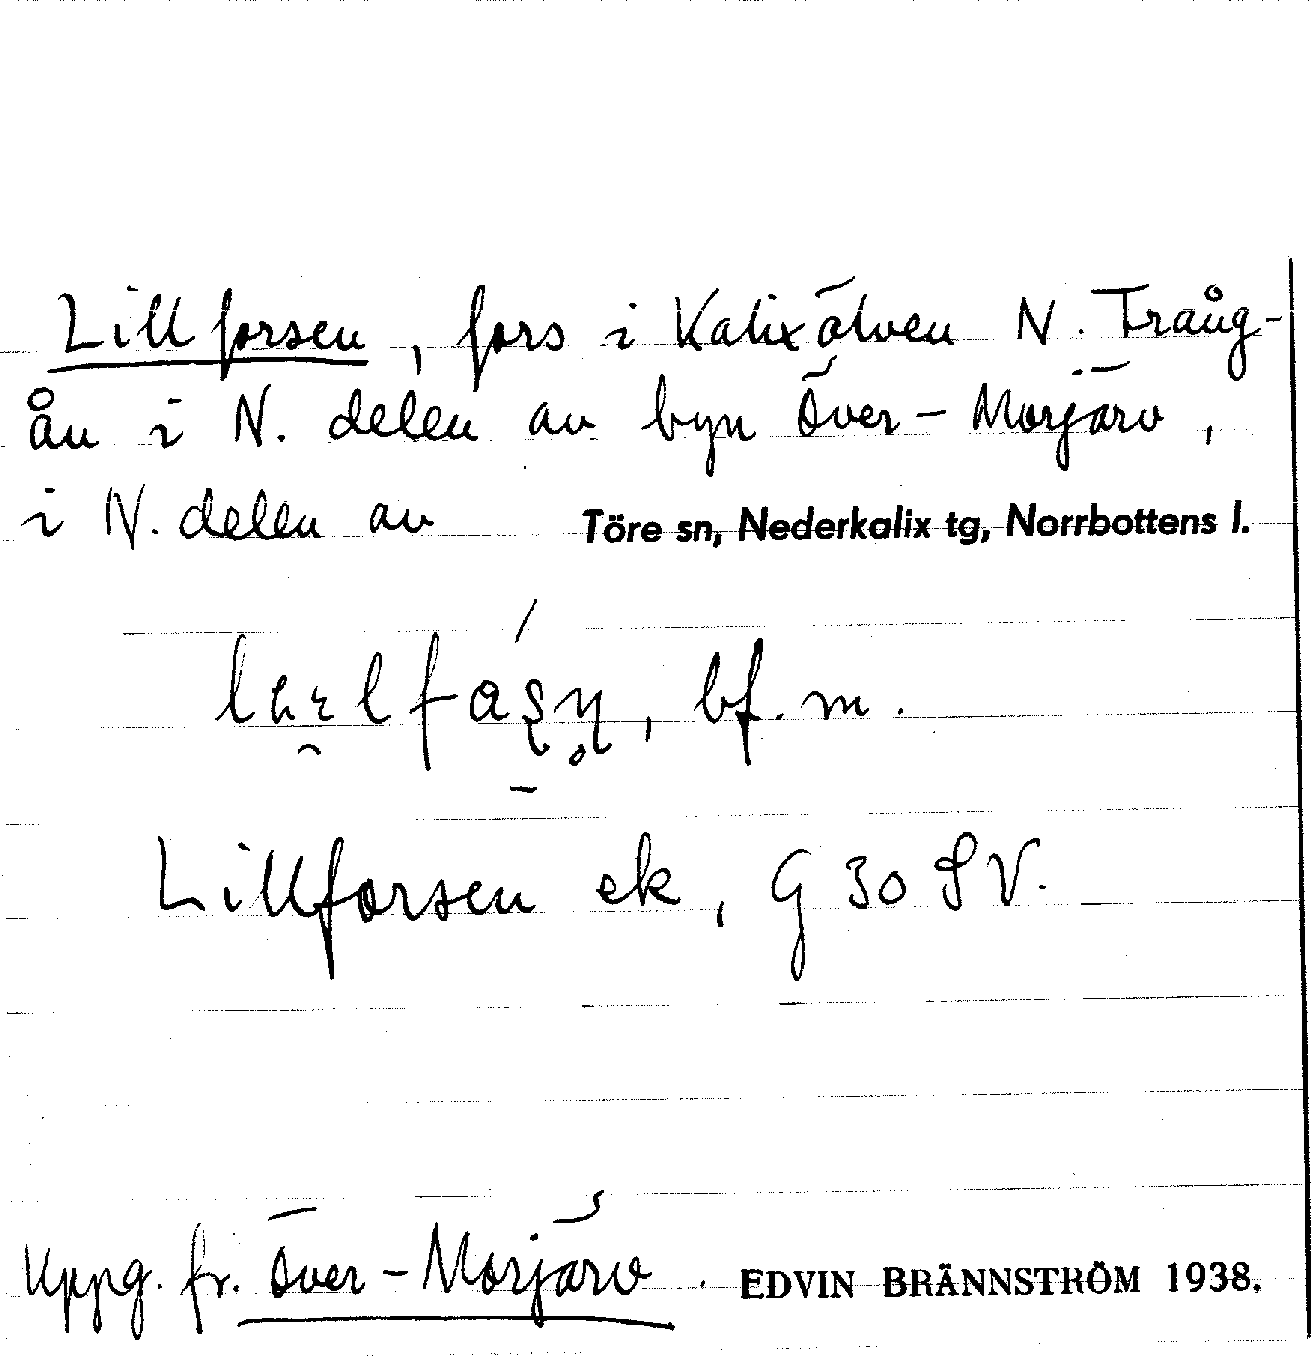 Lillforsen, fors i Kalixälven N. Trång-
ån i N. delen av byn Över-Morjärv,
i N. delen av Töre sn, Nederkalix tg, Norrbottens l.
bf. m.
Lillforsen ek, G 30 SV.
Uppg. fr. Över-Morjärv. EDVIN BRÄNNSTRÖM 1938.